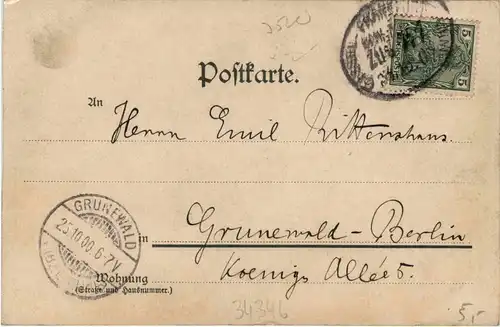 3520
5
Postkarte.
An
Herrn Emil Rittershaus.
GRUNEWALD
23.10.00.6-7V.
in Grunewald-Berlin
Wohnung
(Straße und Hausnummer.)
Koenigs Allée 5.
34346
5,-